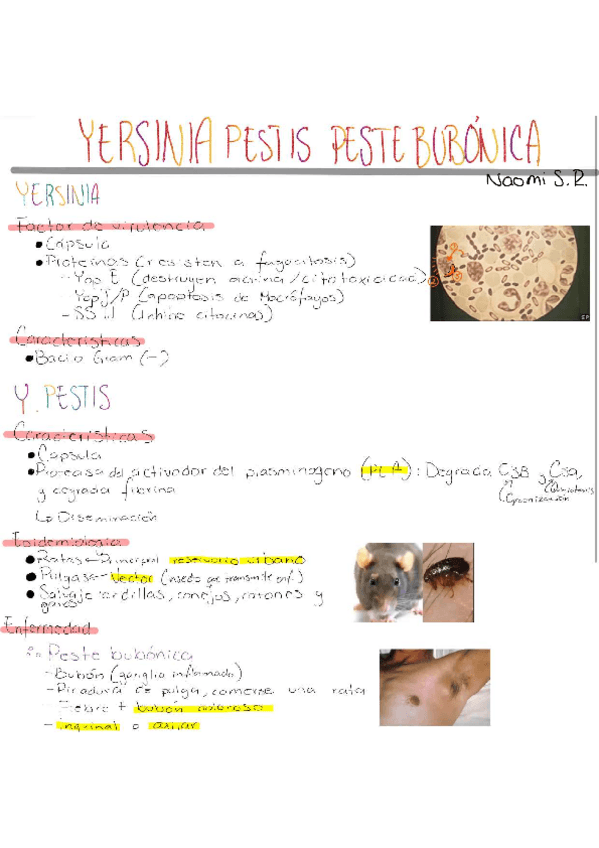 YERSINIA PESTIS PESTE BUBÓNICA
Naomi S.R.
YERSINIA
Factor de virulencia
• Cápsula
• Proteínas (resisten a fagocitosis)
- Yop E (destruyen actina/citotoxicidad)
- YopJ/P (apoptosis de Macrófagos)
- SS (Inhibe citocinas)
Características
• Bacilo Gram (-)
Y. PESTIS
Características
• Capsula
• Proteasa del activador del plasminogeno (PLA): Degrada C3B y C5a,
y degrada fibrina
Opsonización
↳ Diseminación
Epidemiología
• Ratas → Principal reservorio urbano
• Pulgas → Vector (insecto que transmite enf.)
• Salvaje ardillas, conejos, ratones y
gatos
Enfermedad
Peste bubónica
- Bubón (ganglio inflamado)
- Picadura de pulga, comerse una rata
- Fiebre + bubón doloroso
- Inguinal o axilar